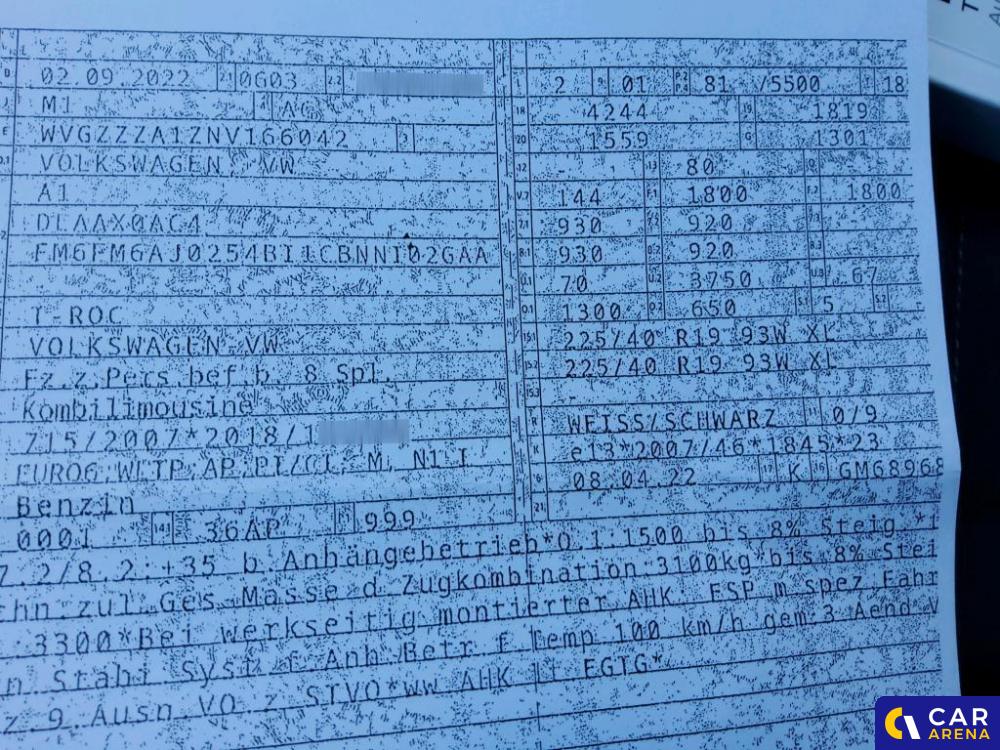 02.09.2022 2.1 0603 2.2
M1 4 AC
E WVGZZZA1ZNV166042
D.1 VOLKSWAGEN, VW
A1
DLAAX0AC4
FM6FM6AJ0254BI1CBNNI02GAA
T-ROC
VOLKSWAGEN, VW
Fz.z.Pers.bef.b. 8 Spl.
Kombilimousine
715/2007*2018/1
EURO6 WLTP AP PI/CI, M, N1 I
Benzin
0001 14.1 36AP 999
2 9 01 P.2 P.4 81 /5500 T 18
18 4244 19 1819
20 1559 G 1301
12 - 13 80 Q
V.7 144 F.1 1800 F.2 1800
7.1 930 7.2 920 7.3
8.1 930 8.2 920 8.3
U.1 70 U.2 3750 U.3 67
O.1 1300 O.2 650 S.1 5 S.2
15.1 225/40 R19 93W XL
15.2 225/40 R19 93W XL
15.3
R WEISS/SCHWARZ 11 0/9
K e13*2007/46*1845*23
6 08.04.22 17 K 16 GM68968
21
7.2/8.2:+35 b.Anhängebetrieb*O.1:1500 bis 8% Steig.*
zul.Ges.Masse d.Zugkombination:3100kg*bis 8% Stei
3300*Bei werkseitig montierter AHK: ESP m.spez.Fahr
Stabi.Syst.f.Anh.Betr.f.Temp.100 km/h gem.3.Aend.V
z.9.Ausn.VO.z.STVO*ww.AHK lt.EGTG*
CAR
ARENA